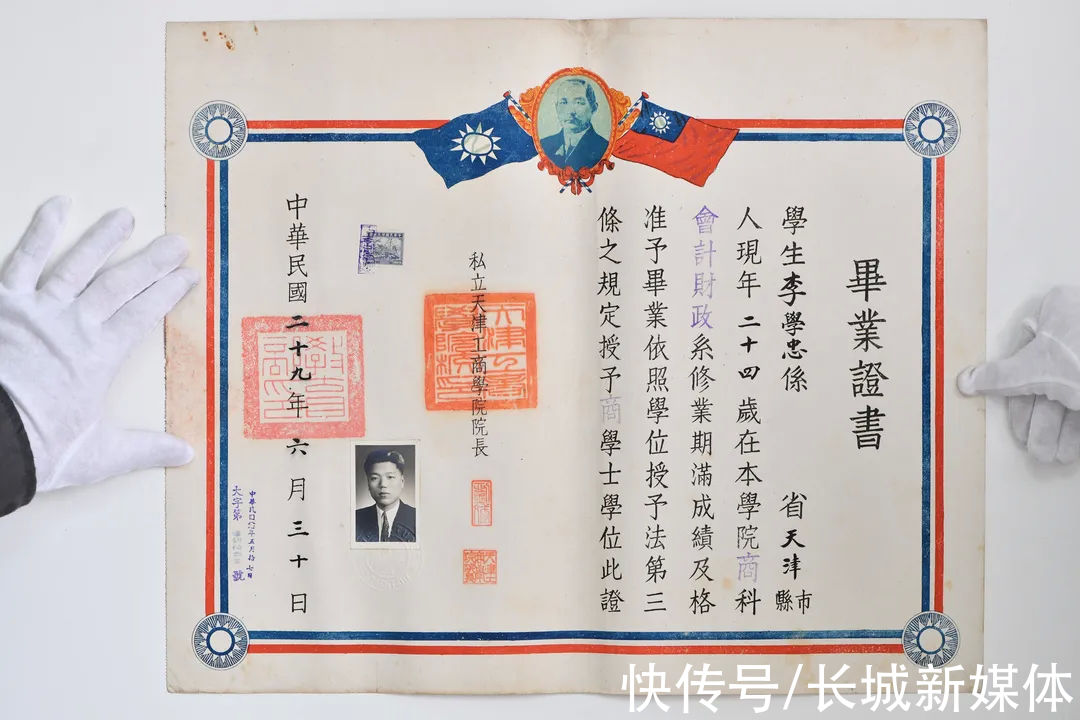 畢業證書
學生李學忠係 省天津市縣
人現年二十四歲在本學院商科
會計財政系修業期滿成績及格
准予畢業依照學位授予法第三
條之規定授予商學士學位此證
私立天津工商學院院長
中華民國二十九年六月三十日
大字第 號
快传号/长城新媒体